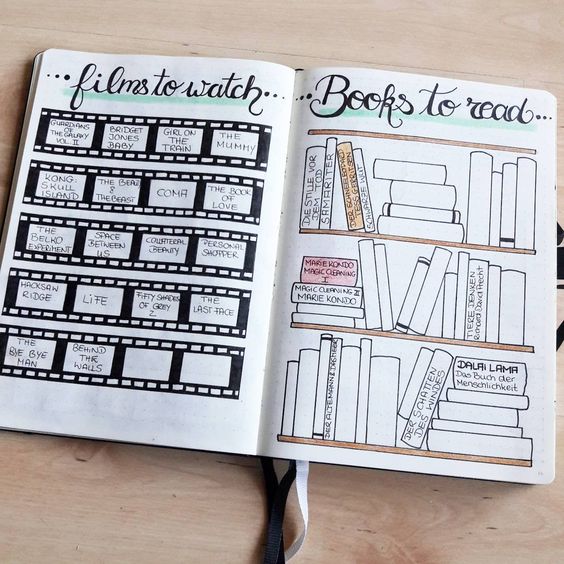 films to watch
GUARDIANS
OF THE
GALAXY
VOL. II
BRIDGET
JONES
BABY
GIRL ON
THE
TRAIN
THE
MUMMY
KONG:
SKULL
ISLAND
THE BEAUTY
& THE
BEAST
COMA
THE BOOK
OF
LOVE
THE
BELKO
EXPERIMENT
SPACE
BETWEEN
US
COLLATERAL
BEAUTY
PERSONAL
SHOPPER
HACKSAW
RIDGE
LIFE
FIFTY SHADES
OF GREY
2
THE
LAST FACE
THE
BYE BYE
MAN
BEHIND
THE
WALLS
Books to read
DIE STILLE VOR
DEM TOD
SAMARITER
SCHWARZE
MARIE KONDO
MAGIC CLEANING
I
MAGIC CLEANING II
MARIE KONDO
TIERE DENKEN
Richard David Precht
DER SCHATTEN
DES WINDES
DALAI LAMA
Das Buch der
Menschlichkeit